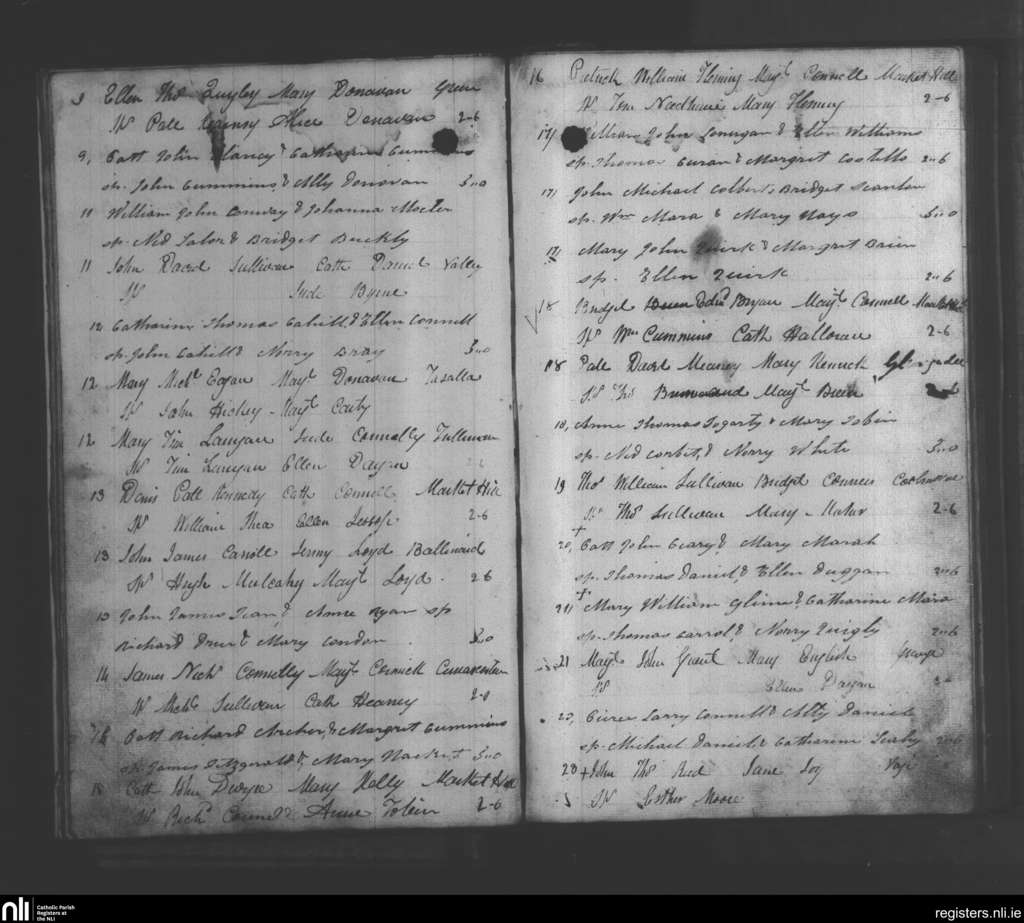 9 Ellen Thos Quigley Mary Donovan Green
Sp Patt Alice Donavan 2-6
9, Patt John Clancy & Catharine Cummins
sp. John Cummins & Ally Donovan 3"0
11 William John Conway & Johanna
sp. Ned & Bridget Buckly
11 John David Sullivan Cath Daniel Valley
Sp Jude Byrne
12 Catharine Thomas Cahill & Ellen Connell
sp. John Cahill & Norry Bray 3"0
12 Mary Michl Egan Mayt Donavan
Sp John Hickey - Mayt
12 Mary Tim Lanigan Jude Connolly
Sp Tim Lanigan Ellen
13 Denis Patt Kennedy Cath Connell Market Hill
Sp William Shea Ellen 2-6
13 John James Carroll Jenny Loyd
Sp Hugh Mulcahy Mayt Loyd. 2 6
13 John James & Anne Ryan sp
Richard & Mary Condon 3"0
14 James Nichs Connolly Mayt Cormick
Sp Michl Sullivan Cath Heaney 2-0
14 Patt Richard Archer & Margret Cummins
sp. James Fitzgerald & Mary Hacket 3"0
15 Cath John Dwyer Mary Kelly Market Hill
Sp Richd Connell Anne Tobin 2-6
16 Patrick William Fleming Mayt Connell Market Hill
Sp Tom Mary Fleming 2-6
17, William John Lonnigan & Ellen Williams
sp. Thomas Curan & Margret Costello 2"6
17, John Michael Colbert, Bridget Scanlan
sp. Wm Mara & Mary Hays 3"0
17, Mary John Quirk & Margret Brien
sp. Ellen Quirk 2"6
18 Bridget Bryan Mayt Connell
Sp Wm Cummins Cath Halloran 2-6
18 Patt David Meaney Mary
Sp Thos Mayt Breen 2-6
18, Anne Thomas Fogarty & Mary Tobin
sp. Ned Corbet, & Norry White 3"0
19 Thos William Sullivan Bridget Conners
Sp Thos Sullivan Mary - 2-6
20, Patt John Geary & Mary Marah
sp. Thomas Daniel, & Ellen Duggan 2"6
21, Mary William Glinn & Catharine Mara
sp. Thomas Carrol, & Norry Quigly 2"6
21 Mayt John Grant Mary English
Sp Ellen
20, Larry Connell & Ally Daniel
sp. Michael Daniel, & Catharine Leahy 2"6
28 + John Thos Reed Jane
Sp Esther Moore
nli Catholic Parish
Registers at
the NLI
registers.nli.ie